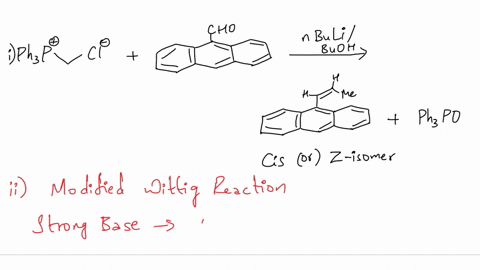 CHO
i) Ph3P⊕ Cl⊖ + nBuLi/
BuOH
H
H Me
+ Ph3PO
Cis (or) Z-isomer
ii) Modified Wittig Reaction
Strong Base →